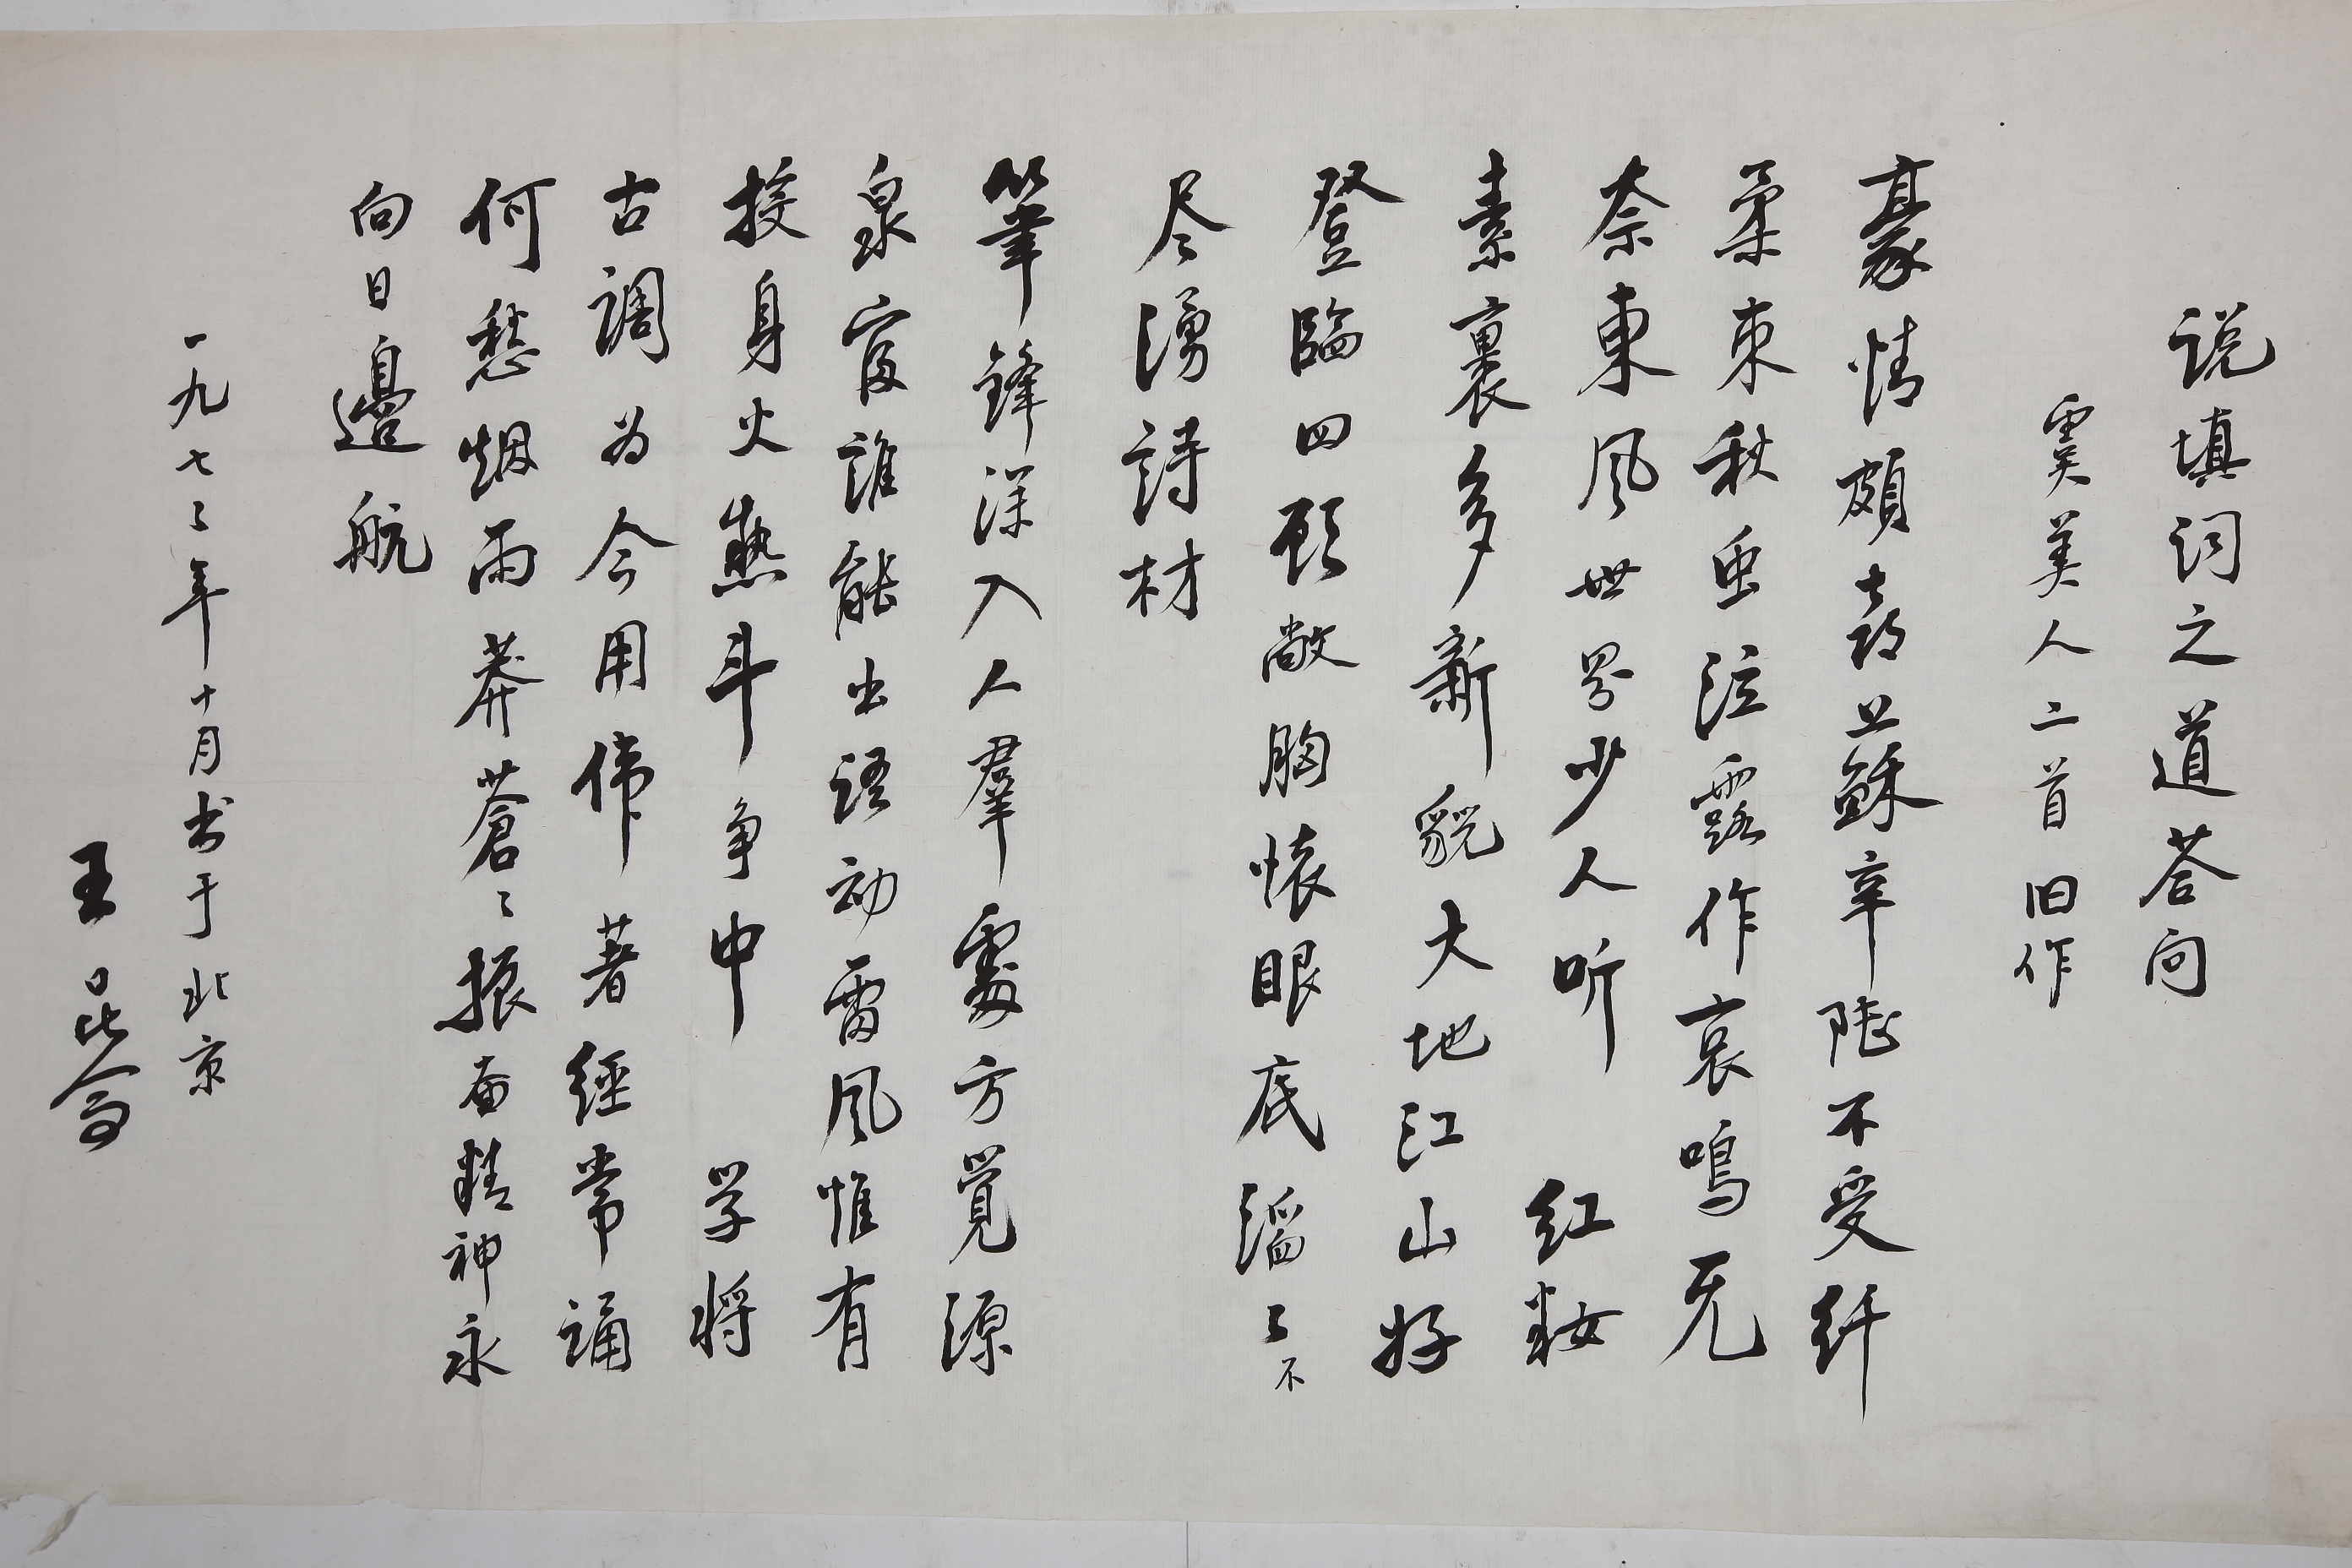 说填词之道荅问
虞美人二首旧作
豪情頗喜兰蘇辛陆不受纤
柔束秋虫泣露作哀鳴无
奈東风世界少人听 红妝
素裹多新貌大地江山好
登臨四顾敞胸懐眼底滔〻不
尽湧詩材
筆鋒深入人羣處方覚源
泉富誰能出語动雷风惟有
投身火热斗争中 学将
古調为今用偉著經常诵
何愁烟雨莽蒼〻振奋精神永
向日邊航
一九七〻年十月书于北京
王昆侖